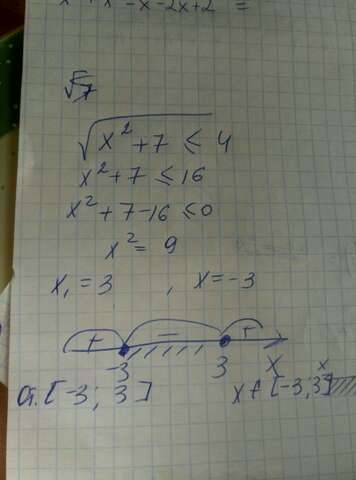 -x-2x+2 =
√7
√x²+7 ≤ 4
x²+7 ≤ 16
x²+7-16 ≤ 0
x² = 9
x₁ = 3 , x = -3
+ - +
-3 3 x
[-3; 3] x ∈ [-3; 3]